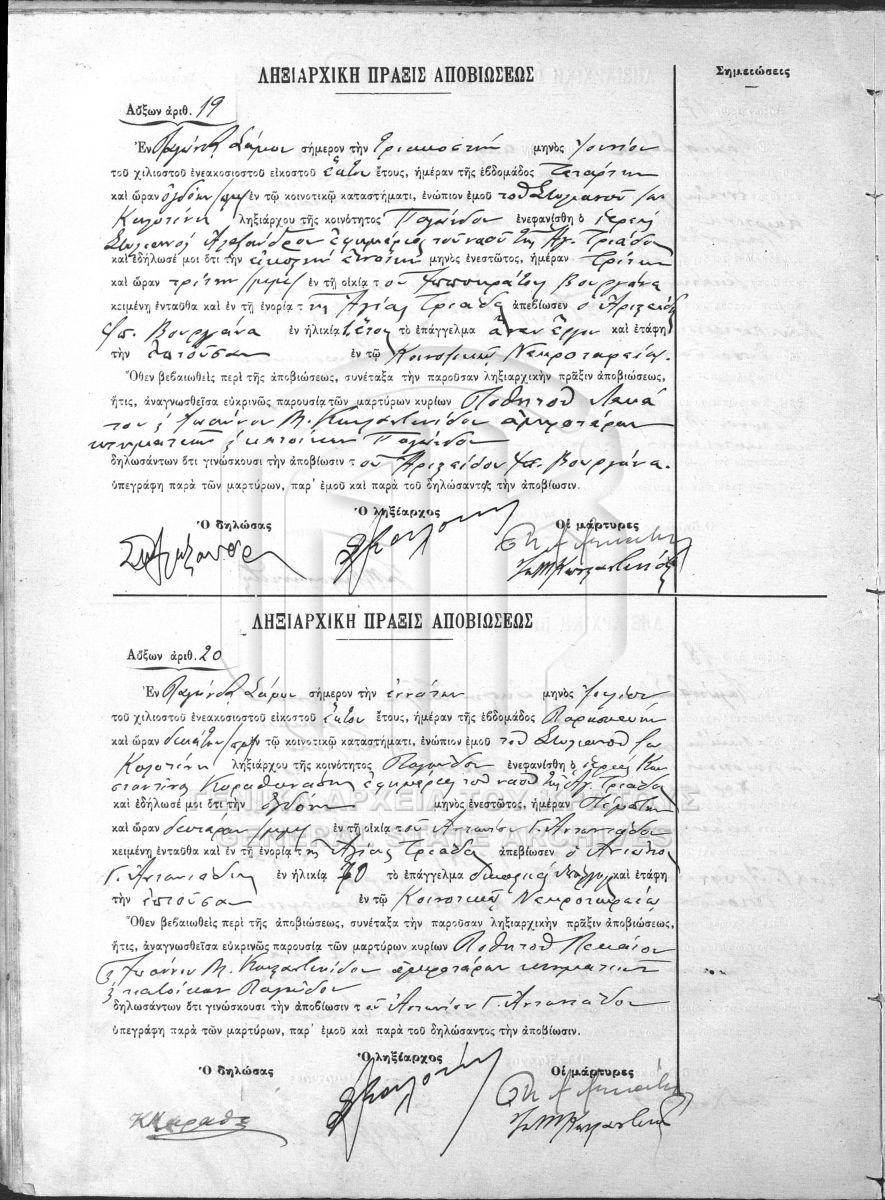 ΛΗΞΙΑΡΧΙΚΗ ΠΡΑΞΙΣ ΑΠΟΒΙΩΣΕΩΣ
Σημειώσεις
Αὔξων ἀριθ. 19
Ἐν Παγώνδᾳ Σάμου σήμερον τὴν τριακοστήν μηνὸς Ἰουνίου
τοῦ χιλιοστοῦ ἐνεακοσιοστοῦ εἰκοστοῦ ἕκτου ἔτους, ἡμέραν τῆς ἑβδομάδος Τετάρτην
καὶ ὥραν ὀγδόην π.μ. ἐν τῷ κοινοτικῷ καταστήματι, ἐνώπιον ἐμοῦ τοῦ Στυλιανοῦ
ληξιάρχου τῆς κοινότητος Παγώνδου ἐνεφανίσθη ὁ ἱερεὺς
Στυλιανὸς Ἀλεξάνδρου ἐφημέριος τοῦ ναοῦ τῆς Ἁγ. Τριάδος
καὶ ἐδήλωσέ μοι ὅτι τὴν εἰκοστὴν ἐννάτην μηνὸς ἐνεστῶτος, ἡμέραν Τρίτην
καὶ ὥραν τρίτην μ.μ. ἐν τῇ οἰκίᾳ τοῦ Ἱπποκράτους Βουργάνα
κειμένῃ ἐνταῦθα καὶ ἐν τῇ ἐνορίᾳ τῆς Ἁγίας Τριάδος ἀπεβίωσεν ὁ Ἀριστείδης
Ἱπ. Βουργάνα ἐν ἡλικίᾳ ἔτους τὸ ἐπάγγελμα ἄνευ ἔργου καὶ ἐτάφη
τὴν ἐπιοῦσαν ἐν τῷ Κοινοτικῷ Νεκροταφείῳ.
Ὅθεν βεβαιωθεὶς περὶ τῆς ἀποβιώσεως, συνέταξα τὴν παροῦσαν ληξιαρχικὴν πρᾶξιν ἀποβιώσεως,
ἥτις, ἀναγνωσθεῖσα εὐκρινῶς παρουσίᾳ τῶν μαρτύρων κυρίων Ποθητοῦ
Ἰωάννου Μ. Κωνσταντινίδου ἀμφοτέρων
κτηματιῶν κατοίκων Παγώνδου
δηλωσάντων ὅτι γινώσκουσι τὴν ἀποβίωσιν τοῦ Ἀριστείδου Ἱπ. Βουργάνα.
ὑπεγράφη παρὰ τῶν μαρτύρων, παρ' ἐμοῦ καὶ παρὰ τοῦ δηλώσαντος τὴν ἀποβίωσιν.
Ὁ δηλώσας
Ὁ ληξίαρχος
Οἱ μάρτυρες
ΛΗΞΙΑΡΧΙΚΗ ΠΡΑΞΙΣ ΑΠΟΒΙΩΣΕΩΣ
Αὔξων ἀριθ. 20
Ἐν Παγώνδᾳ Σάμου σήμερον τὴν ἐννάτην μηνὸς Ἰουλίου
τοῦ χιλιοστοῦ ἐνεακοσιοστοῦ εἰκοστοῦ ἕκτου ἔτους, ἡμέραν τῆς ἑβδομάδος Παρασκευήν
καὶ ὥραν δεκάτην π.μ. ἐν τῷ κοινοτικῷ καταστήματι, ἐνώπιον ἐμοῦ τοῦ Στυλιανοῦ
ληξιάρχου τῆς κοινότητος Παγώνδου ἐνεφανίσθη ὁ ἱερεὺς Κων
σταντῖνος Καραθανάσης ἐφημέριος τοῦ ναοῦ τῆς Ἁγ. Τριάδος
καὶ ἐδήλωσέ μοι ὅτι τὴν ὀγδόην μηνὸς ἐνεστῶτος, ἡμέραν Πέμπτην
καὶ ὥραν δευτέραν μ.μ. ἐν τῇ οἰκίᾳ τοῦ Ἀντωνίου Γ. Ἀντωνιάδου
κειμένῃ ἐνταῦθα καὶ ἐν τῇ ἐνορίᾳ τῆς Ἁγίας Τριάδος ἀπεβίωσεν ὁ Ἀντώνιος
Γ. Ἀντωνιάδης ἐν ἡλικίᾳ 70 τὸ ἐπάγγελμα καὶ ἐτάφη
τὴν ἐπιοῦσαν ἐν τῷ Κοινοτικῷ Νεκροταφείῳ
Ὅθεν βεβαιωθεὶς περὶ τῆς ἀποβιώσεως, συνέταξα τὴν παροῦσαν ληξιαρχικὴν πρᾶξιν ἀποβιώσεως,
ἥτις, ἀναγνωσθεῖσα εὐκρινῶς παρουσίᾳ τῶν μαρτύρων κυρίων Ποθητοῦ
Ἰωάννου Μ. Κωνσταντινίδου ἀμφοτέρων κτηματιῶν
κατοίκων Παγώνδου
δηλωσάντων ὅτι γινώσκουσι τὴν ἀποβίωσιν τοῦ Ἀντωνίου Γ. Ἀντωνιάδου
ὑπεγράφη παρὰ τῶν μαρτύρων, παρ' ἐμοῦ καὶ παρὰ τοῦ δηλώσαντος τὴν ἀποβίωσιν.
Ὁ δηλώσας
Ὁ ληξίαρχος
Οἱ μάρτυρες
ΓΕΝΙΚΑ ΑΡΧΕΙΑ ΤΟΥ ΚΡΑΤΟΥΣ
GENERAL STATE ARCHIVES